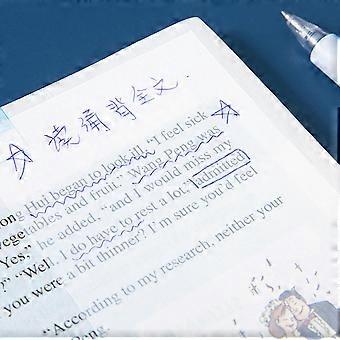 诵背全文.
ong Hui began to look ill. “I feel sick
vegetables and fruit.” Wang Peng was
Yes,” he added, “and I would miss my
?” “Well, I do have to rest a lot,” admitted
you were a bit thinner? I'm sure you'd feel
“According to my research, neither your
Peng.